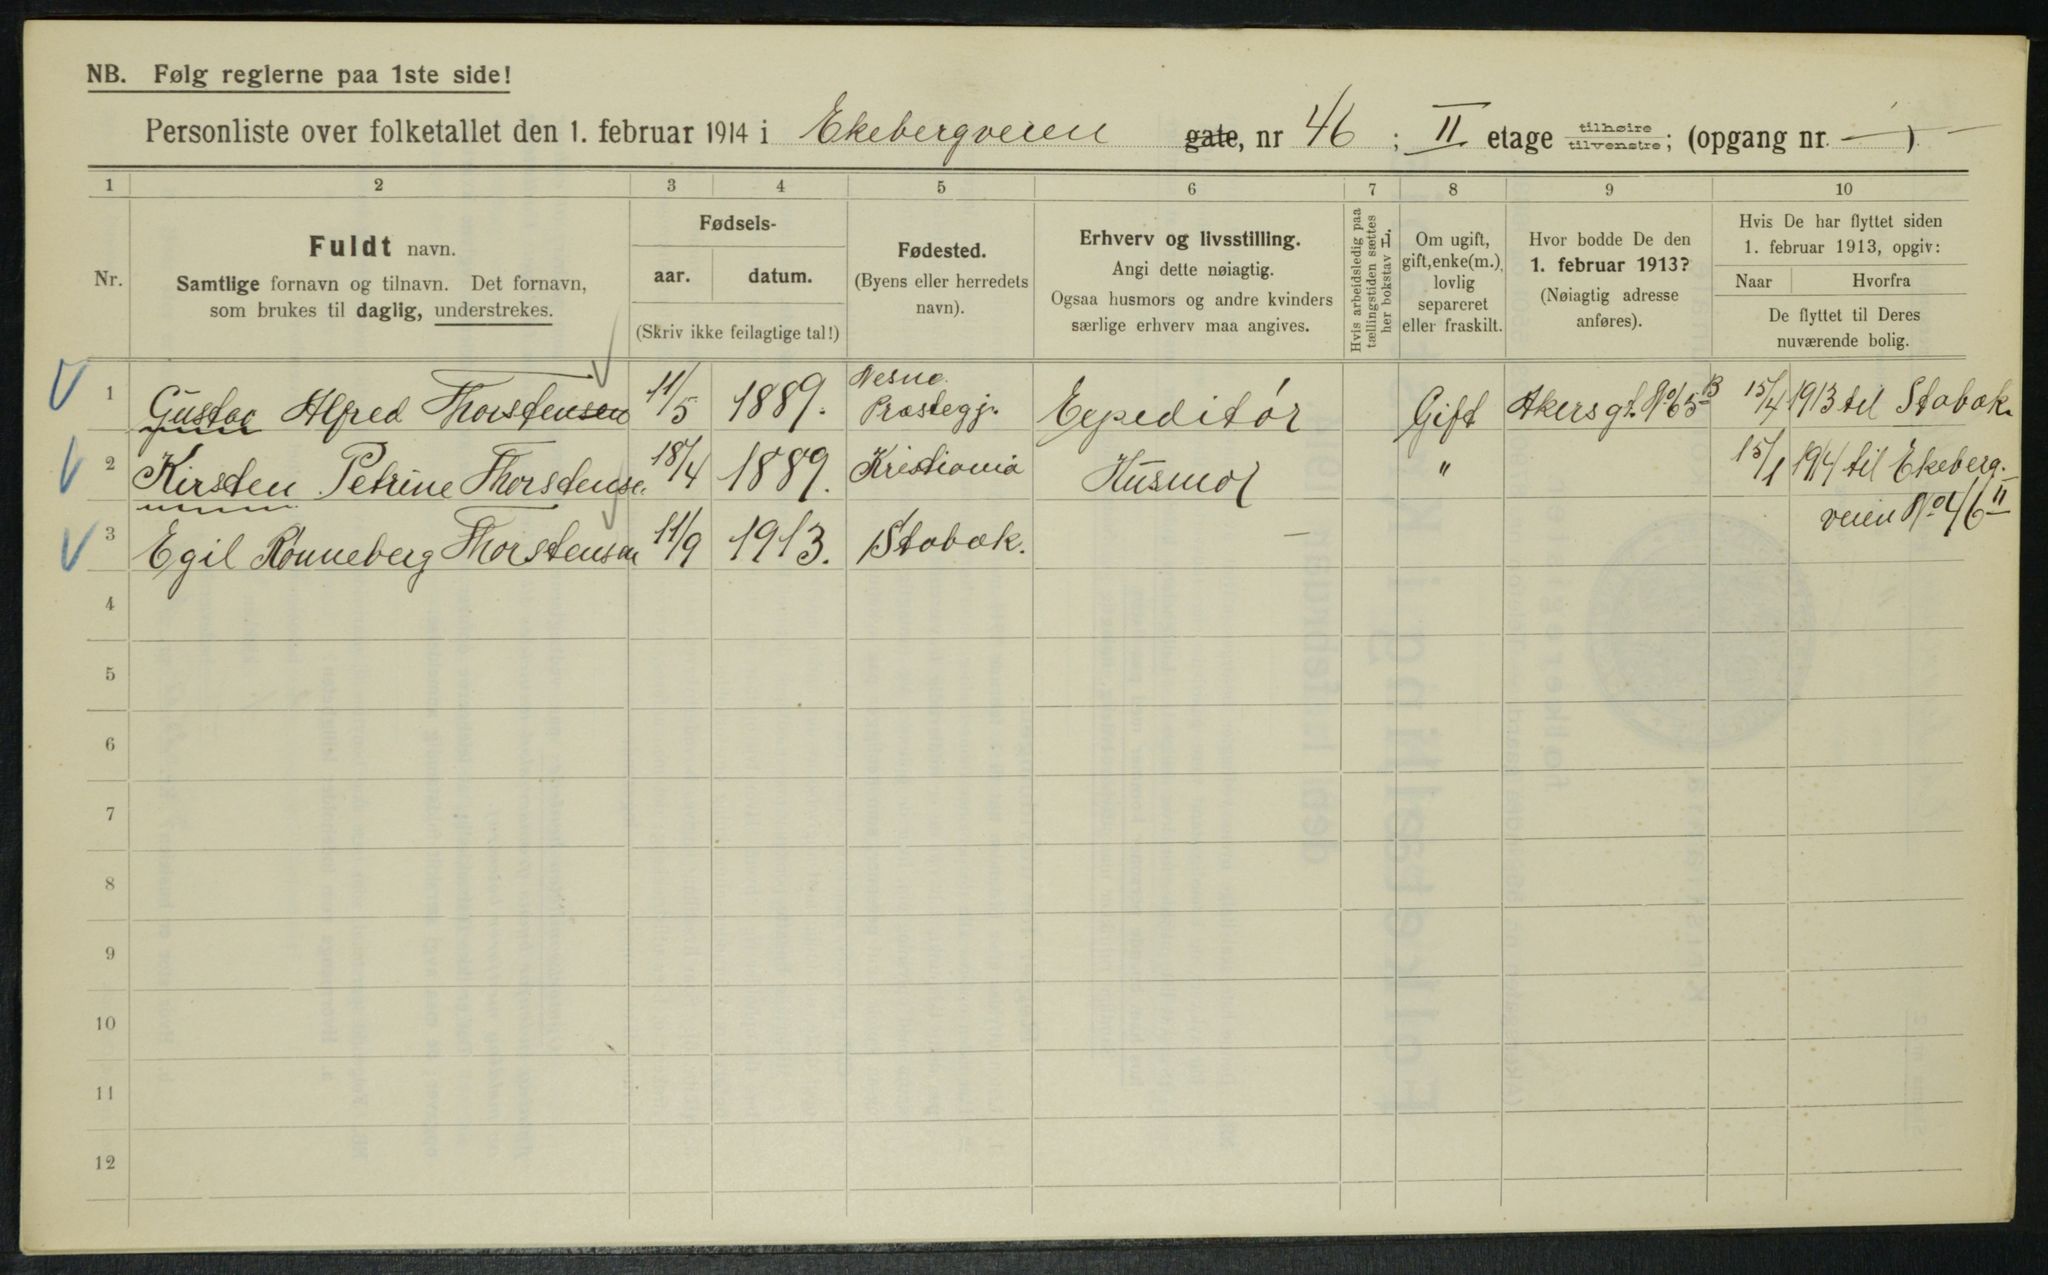 NB. Følg reglerne paa 1ste side!
Personliste over folketallet den 1. februar 1914 i Ekebergveien gate, nr 46 ; II etage tilhøire tilvenstre; (opgang nr. — )
1 2 3 4 5 6 7 8 9 10
Nr.
Fuldt navn.
Samtlige fornavn og tilnavn. Det fornavn,
som brukes til daglig, understrekes.
Fødsels-
aar. datum.
(Skriv ikke feilagtige tal!)
Fødested.
(Byens eller herredets
navn).
Erhverv og livsstilling.
Angi dette nøiagtig.
Ogsaa husmors og andre kvinders
særlige erhverv maa angives.
Hvis arbeidsledig paa
tællingstiden sættes
her bokstav H.
Om ugift,
gift, enke(m.),
lovlig
separeret
eller fraskilt.
Hvor bodde De den
1. februar 1913?
(Nøiagtig adresse
anføres).
Hvis De har flyttet siden
1. februar 1913, opgiv:
Naar Hvorfra
De flyttet til Deres
nuværende bolig.
1 Gustav Alfred Thorstensen 11/5 1889. Nesne Præstegj. Expeditør Gift Akersgt. No 65 B 15/4 1913 til Stabæk.
2 Kirsten Petrine Thorstensen 18/4 1889. Kristiania Husmor " 15/1 1914 til Ekeberg-
veien No 46 II
3 Egil Rønneberg Thorstensen 11/9 1913. Stabæk. —
4
5
6
7
8
9
10
11
12